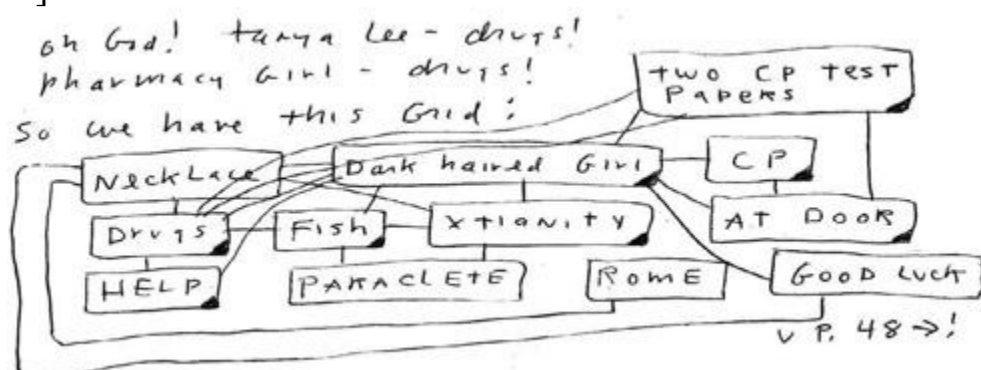 ]
oh God! tanya Lee - drugs!
pharmacy Girl - drugs!
two CP test
Papers
So we have this Grid:
NeckLace
Dark haired Girl
CP
Drugs
Fish
Xtianity
AT DOOR
HELP
PARACLETE
ROME
GOOD LUCK
v P. 48 → !